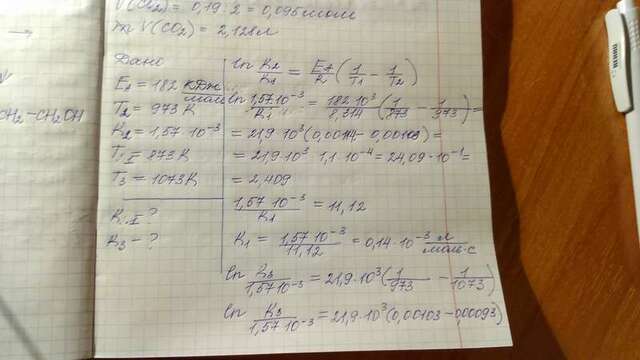 V(Cl₂) = 0,19 : 2 = 0,095 моль
V(CO₂) = 2,128 л
Дано
E₁ = 182 кДж/моль
T₂ = 973 K
K₂ = 1,57 · 10⁻³
T₁ = 873 K
T₃ = 1073 K
K₁ - ?
K₃ - ?
ln K₂/K₁ = EA/R (1/T₁ - 1/T₂)
ln 1,57·10⁻³/K₁ = 182·10³/8,314 (1/873 - 1/973) =
= 21,9·10³ (0,0014 - 0,00103) =
= 21,9·10³ · 1,1·10⁻⁴ = 24,09·10⁻¹ =
= 2,409
1,57·10⁻³/K₁ = 11,12
K₁ = 1,57·10⁻³/11,12 = 0,14·10⁻³ л/моль·с
ln K₃/1,57·10⁻³ = 21,9·10³ (1/973 - 1/1073)
ln K₃/1,57·10⁻³ = 21,9·10³ (0,00103 - 0,00093)
CH₂-CH₂OH